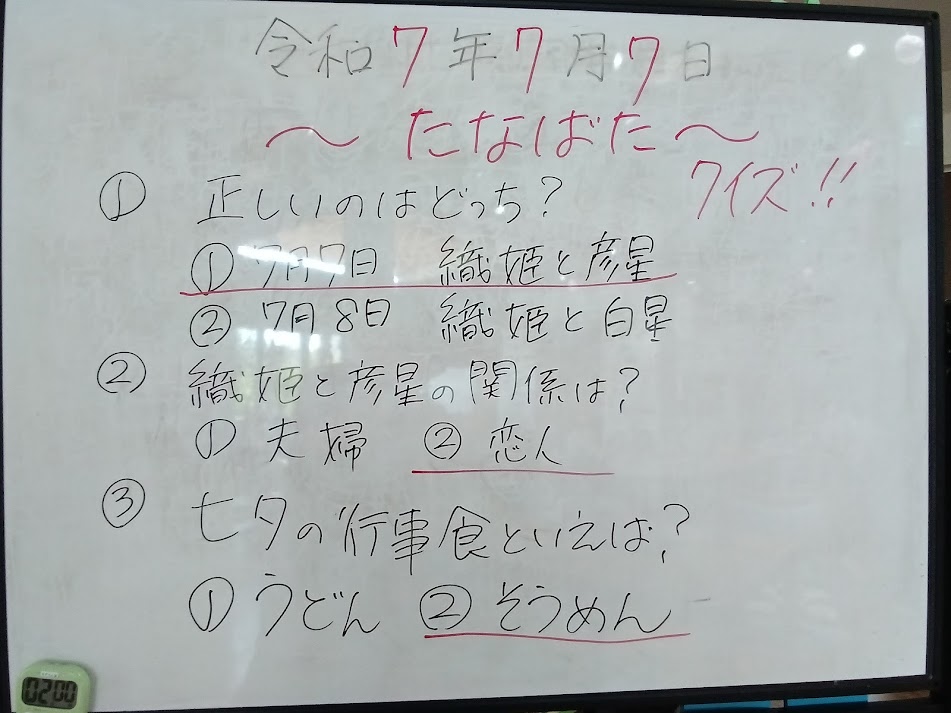 令和7年7月7日
～たなばた～
クイズ!!
① 正しいのはどっち？
① 7月7日 織姫と彦星
② 7月8日 織姫と白星
② 織姫と彦星の関係は？
① 夫婦 ② 恋人
③ 七夕の行事食といえば？
① うどん ② そうめん
02:00